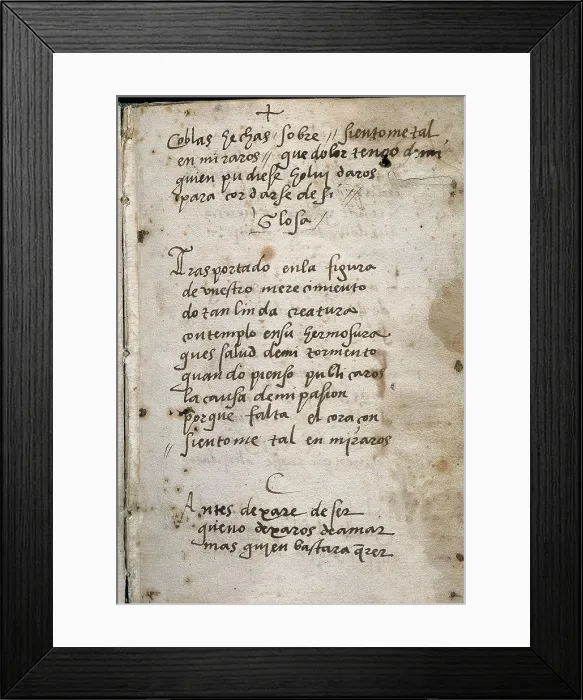 Coblas hechas sobre // sientome tal
en miraros // que dolor tengo demi
quien pudiese holuidaros
para cordarse desi //
Glosa /
Trasportado enla figura
de vuestro merecimiento
do tan linda creatura
contemplo ensu hermosura
ques salud demi tormento
quando pienso publicaros
la causa demi pasion
porque falta el coraçon
// sientome tal en miraros
C
Antes dexare deser
queno dexaros deamar
mas quien bastara q̄rer